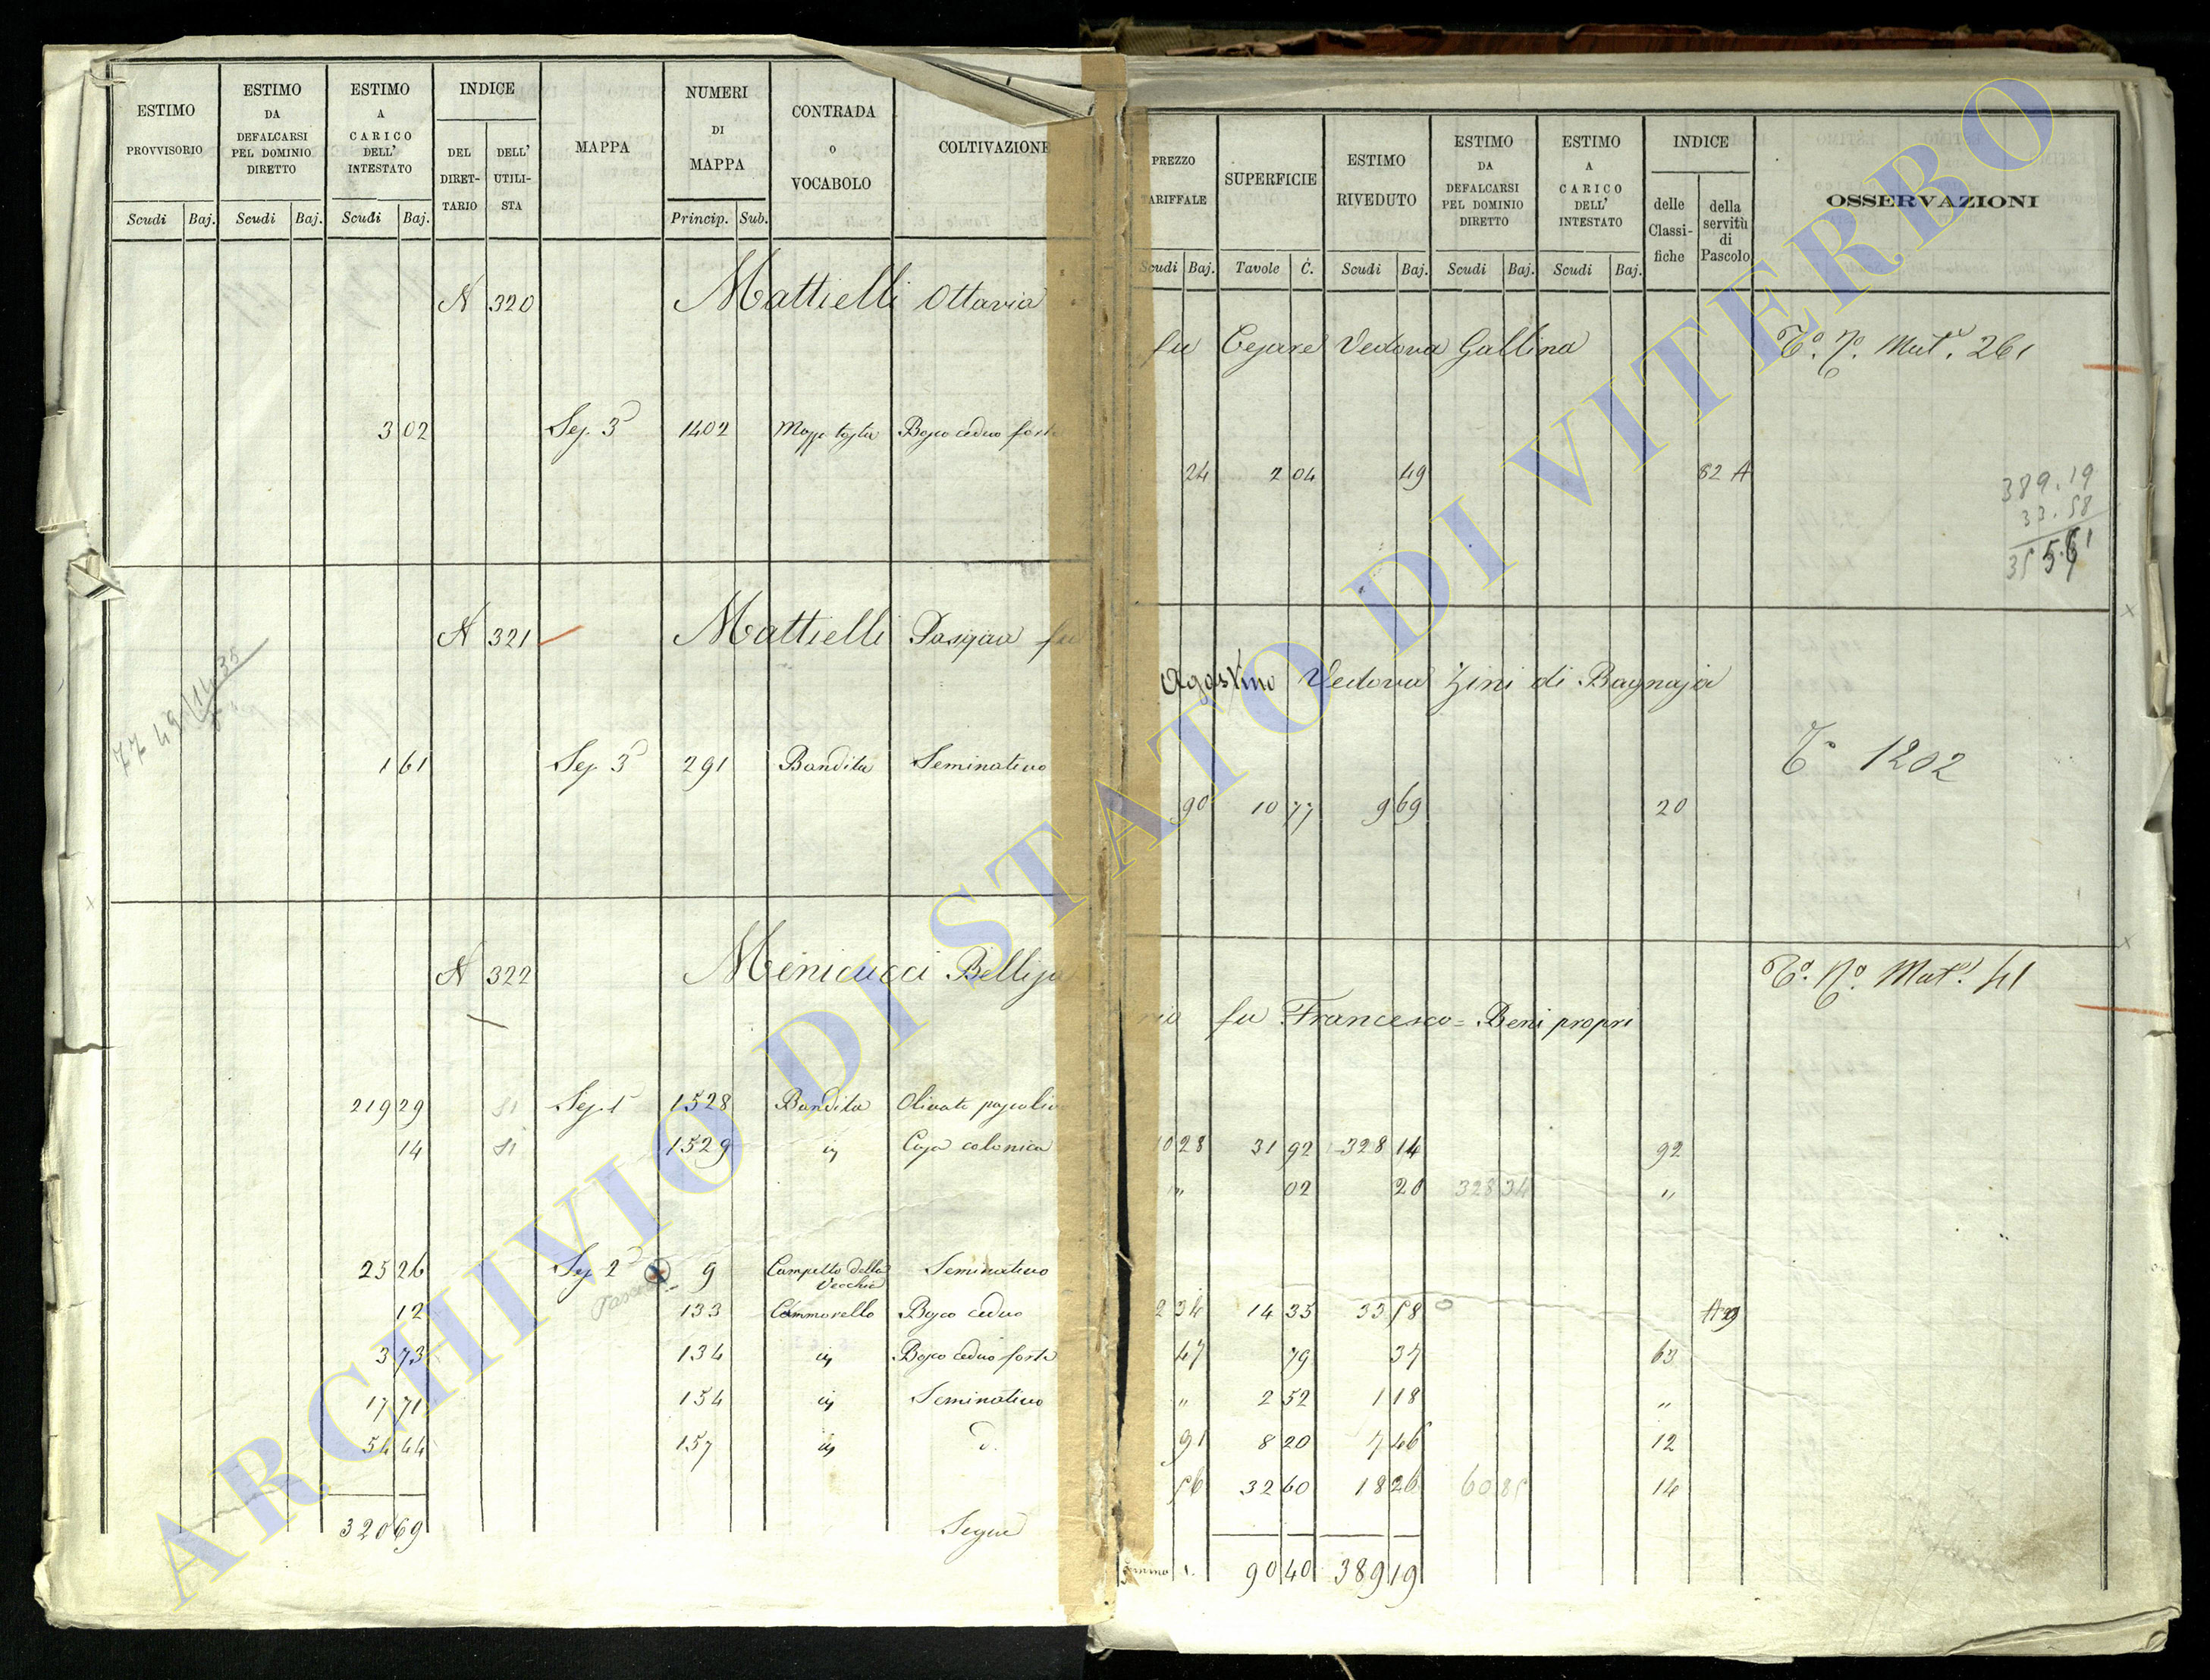 ESTIMO PROVVISORIO
Scudi Baj.
ESTIMO DA DEFALCARSI PEL DOMINIO DIRETTO
Scudi Baj.
ESTIMO A CARICO DELL' INTESTATO
Scudi Baj.
INDICE
DEL DIRET-TARIO
DELL' UTILI-STA
MAPPA
NUMERI DI MAPPA
Princip. Sub.
CONTRADA o VOCABOLO
COLTIVAZIONE
PREZZO TARIFFALE
Scudi Baj.
SUPERFICIE
Tavole C.
ESTIMO RIVEDUTO
Scudi Baj.
ESTIMO DA DEFALCARSI PEL DOMINIO DIRETTO
Scudi Baj.
ESTIMO A CARICO DELL' INTESTATO
Scudi Baj.
INDICE
delle Classi-fiche
della servitù di Pascolo
OSSERVAZIONI
N 320 Mattielli Ottavia
fu Cesare Vedova Gallina
261
3 02 Sez. 3ª 1402 Bosco ceduo forte
24 2 04 49 82 A
389.19
33.58
355.61
N 321 Mattielli Pasqua fu
Agostino Vedova Zini di Bagnaja
1 61 Sez. 3ª 291 Bandita Seminativo
1202
90 10 77 9 69 20
N 322 Menicucci Bellisa
rio fu Francesco = Beni propri
41
219 29 Si Sez. 1ª 1528 Bandita Olivato pascolivo
14 Si 1529 Casa colonica
10 28 31 92 328 14 92
" 02 20 328 34 "
25 26 Sez 2ª 9 Campetto della Vecchia Seminativo
12 133 Cammorello Bosco ceduo
2 34 14 35 33 58 A 29
3 73 134 Bosco ceduo forte
47 79 37 63
17 71 154 Seminativo
" 2 52 1 18 "
54 44 157 d.
91 8 20 7 46 12
56 32 60 18 26 60 85 14
320 69 Segue
90 40 389 19
ARCHIVIO DI STATO DI VITERBO